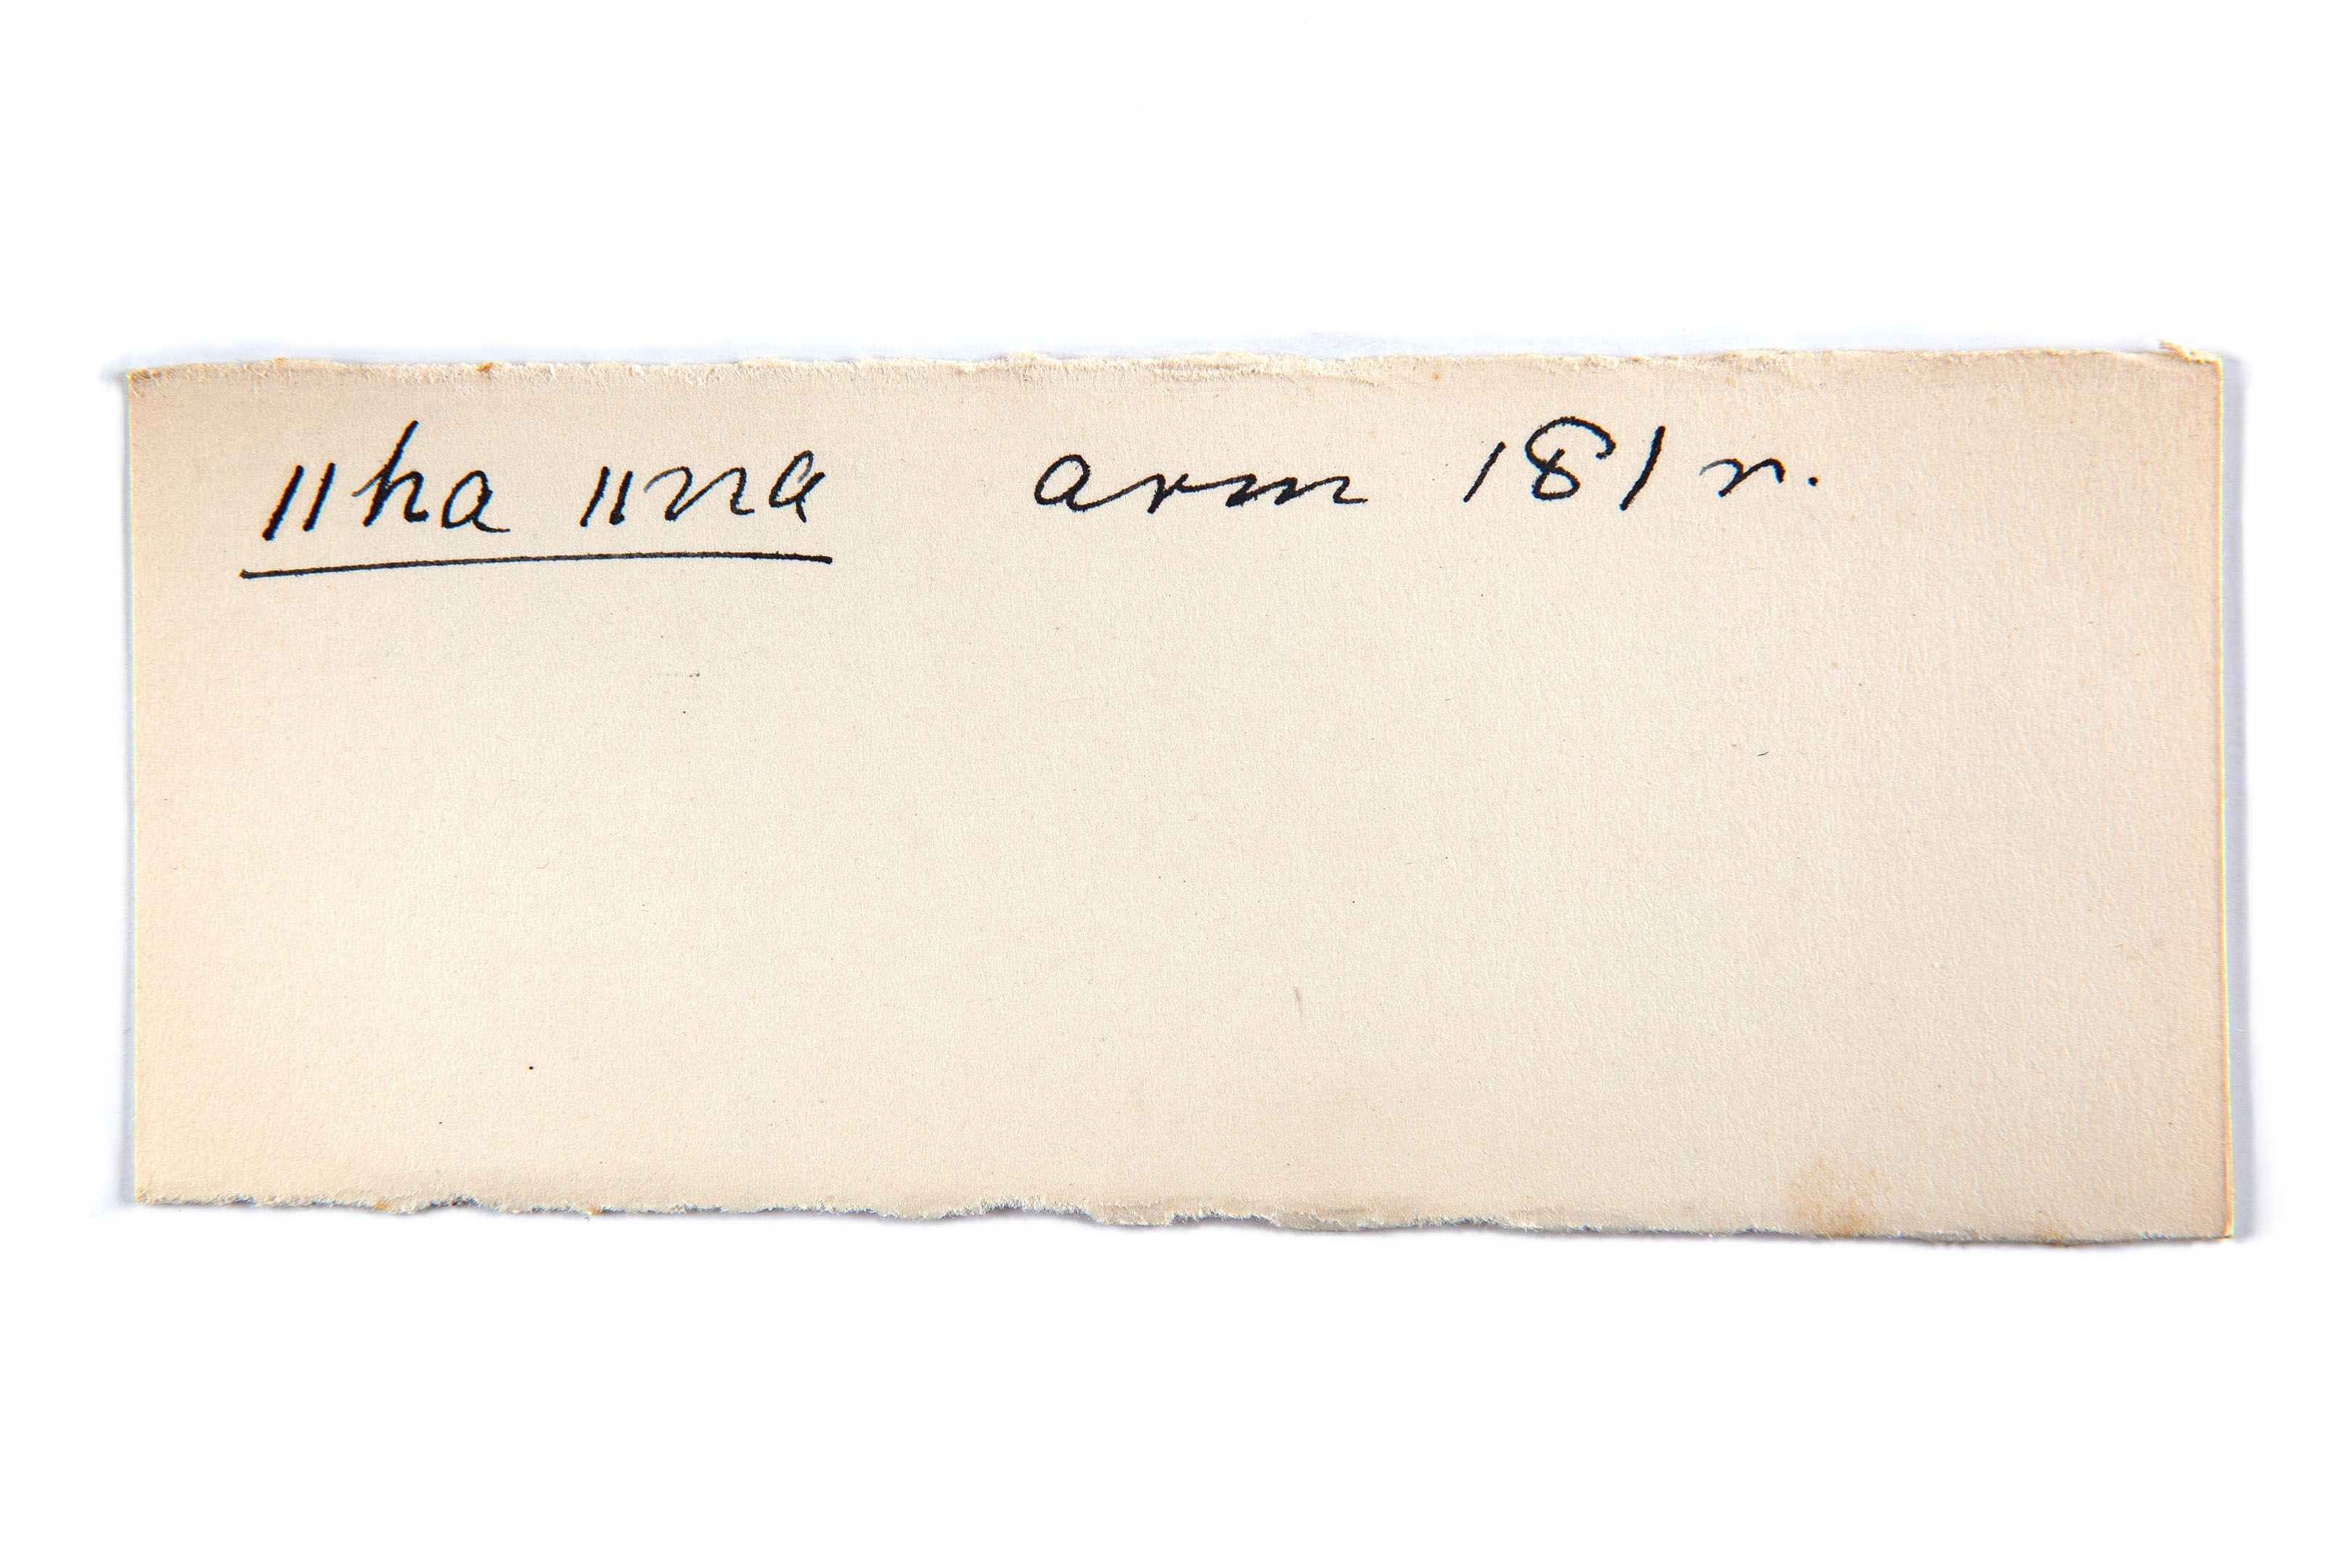 ǁha ǁna arm 181 r.